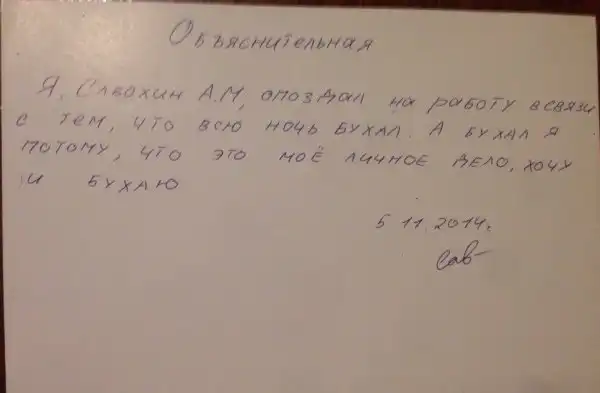 Объяснительная
Я, Савохин А.М, опоздал на работу в связи
с тем, что всю ночь бухал. А бухал я
потому, что это моё личное дело, хочу
и бухаю
5 11. 2014.
Сав